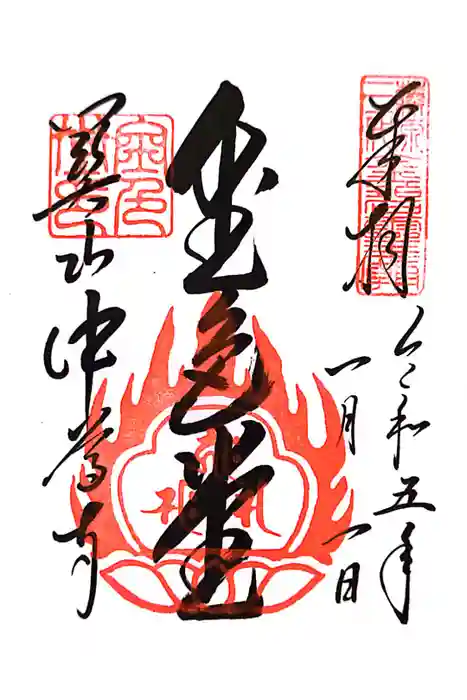 奉拝
令和五年
一月一日
金色堂
關山中尊寺